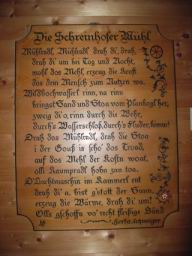 Die Schreinhofer Mühl
Mühlradl, Mühlradl drah di, drah,
drah di um bei Tag und Nocht,
mohl des Mehl, erzeug die Kroft
des den Mensch zum Nutzen wa.
Wildbochwasserl rinn, na rinn
bringst Sand und Stoa vom
zweig di o, rinn durch die Wehr,
durch's Wasserschloß, durch's
Drah des Mühlradl, drah die Stoa
i der Gosß is scho' des Troad,
auf des Mehl der Kostn woat,
olli Raumpradl hobn zan toa.
im Kammerl ent
drah di a, bist g'stott der Sunn,
erzeug die Wärme, drah di um!
Olls gschoffn vo' recht fleißige Händ